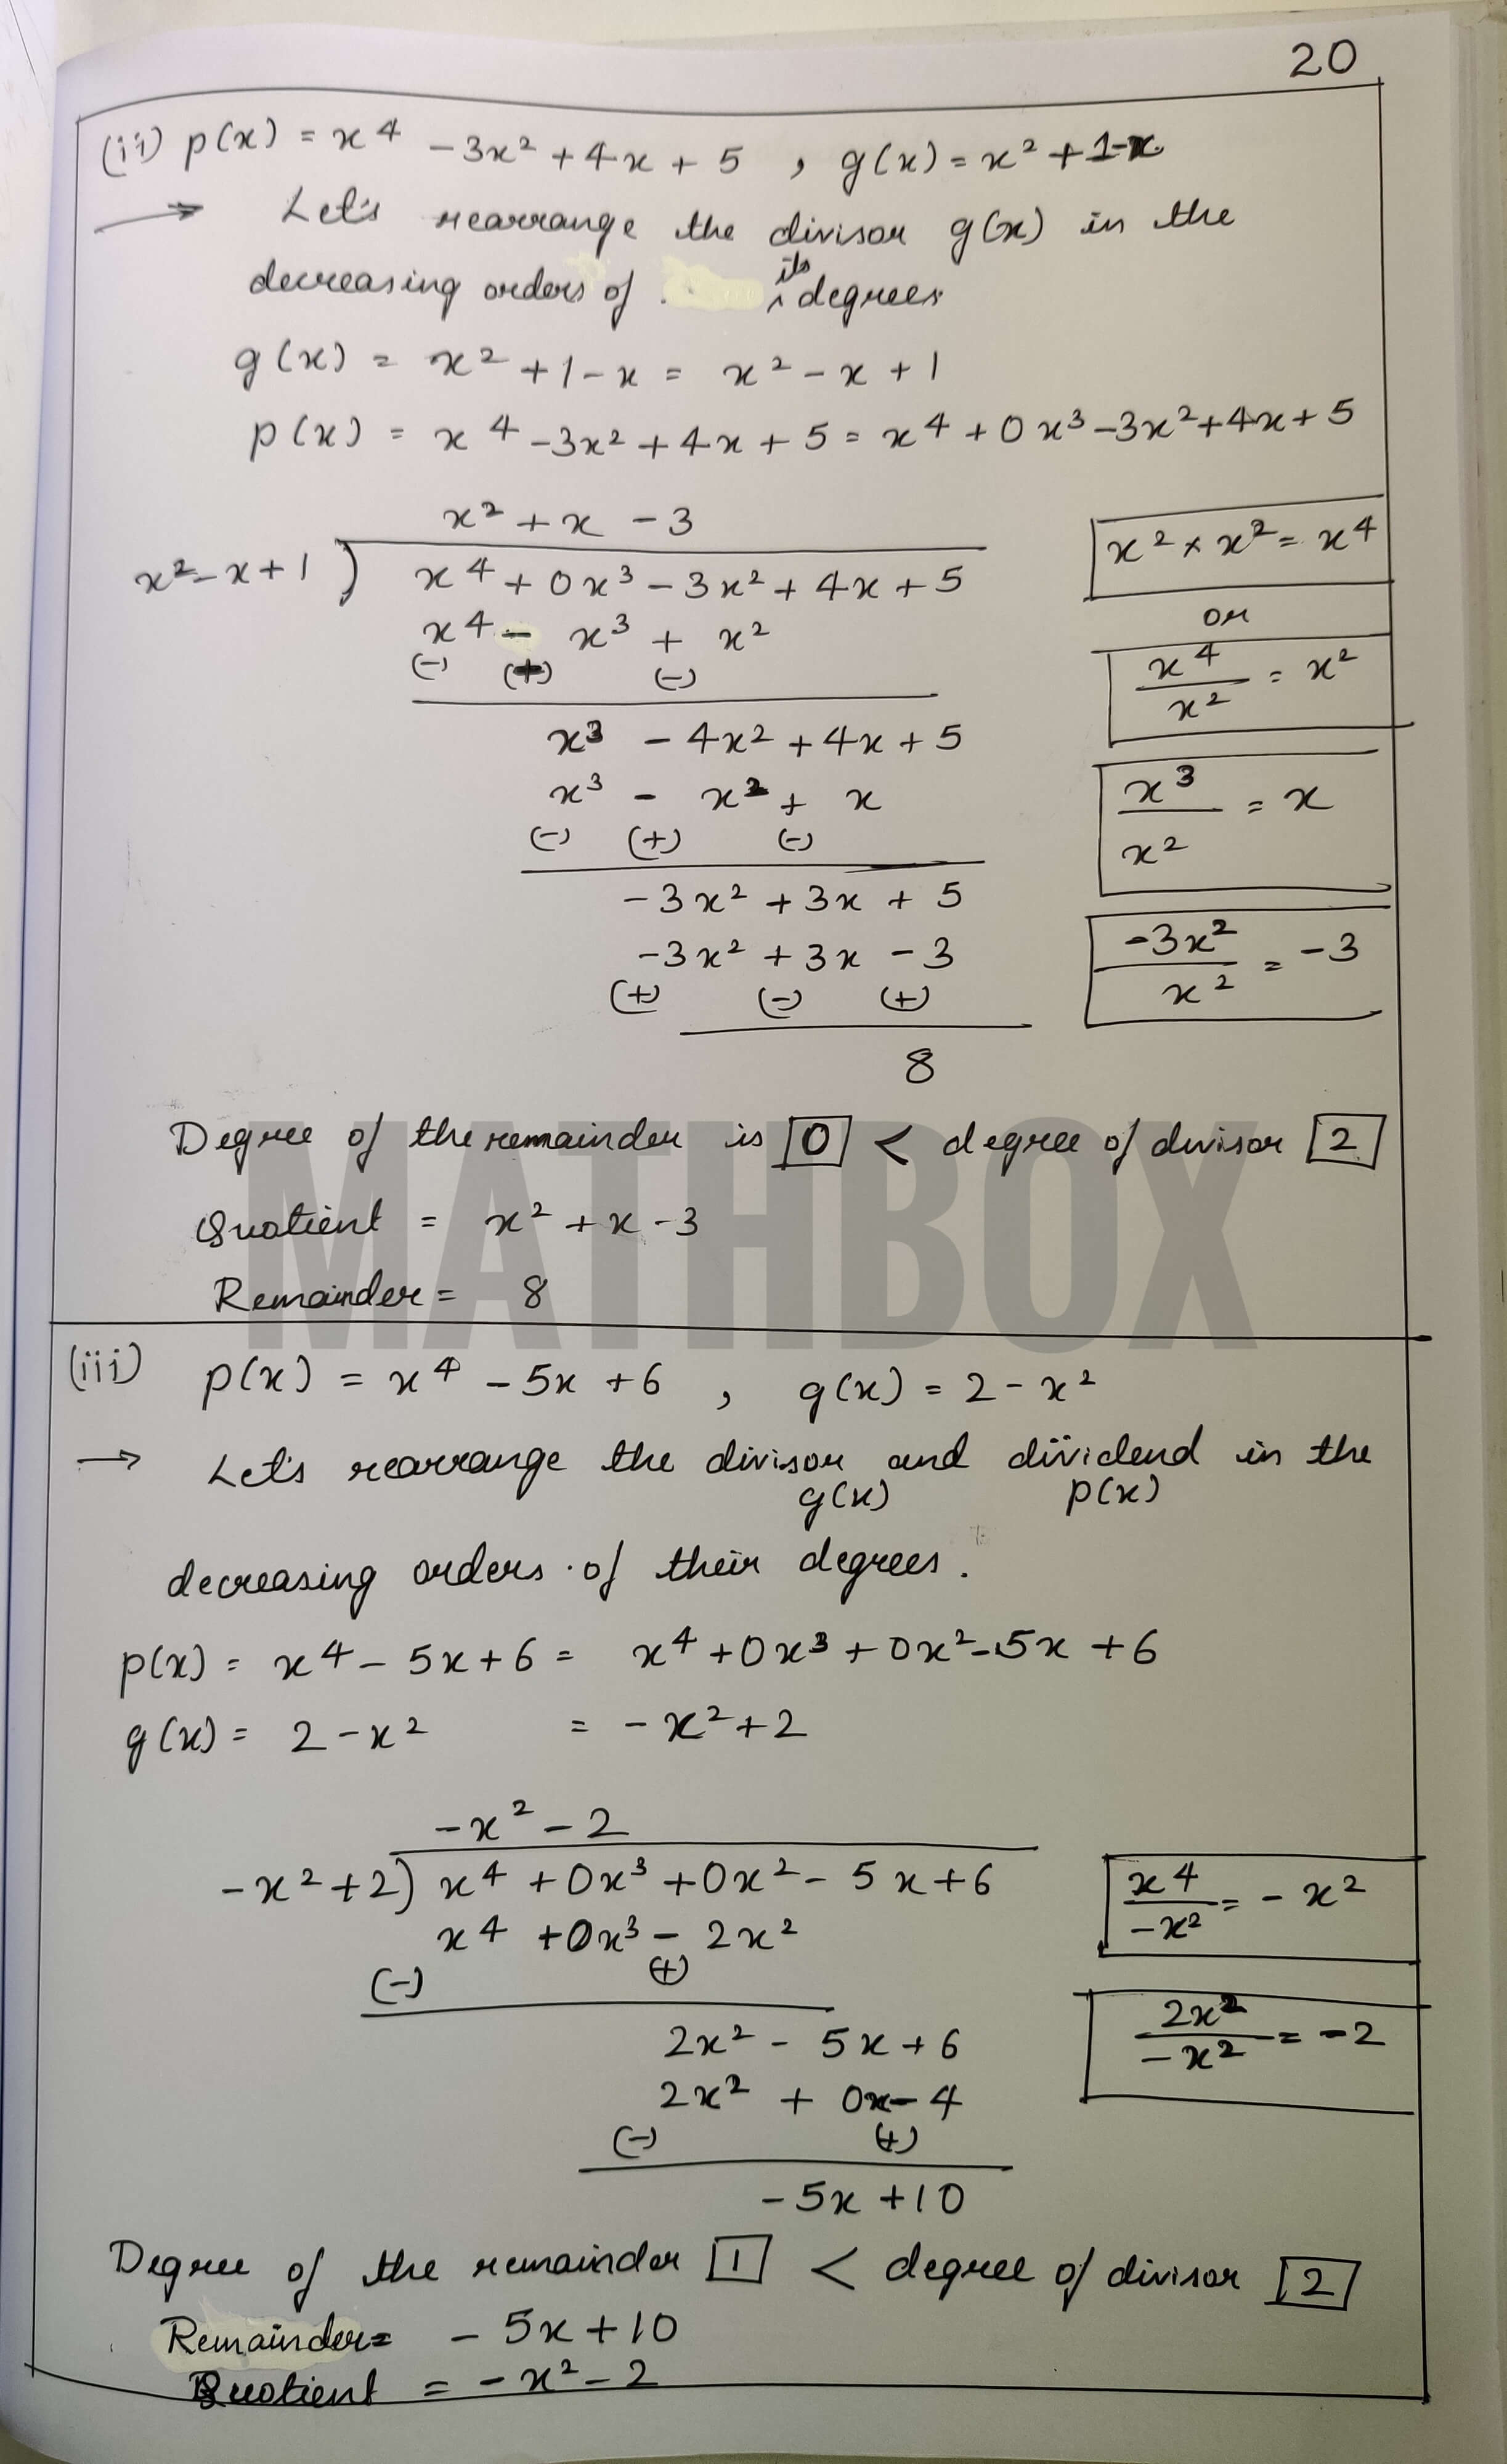 20
(ii) p(x) = x⁴ - 3x² + 4x + 5 , g(x) = x² + 1 - x
→ Let's rearrange the divisor g(x) in the
decreasing orders of its degrees
g(x) = x² + 1 - x = x² - x + 1
p(x) = x⁴ - 3x² + 4x + 5 = x⁴ + 0x³ - 3x² + 4x + 5
x² + x - 3
x² - x + 1 ) x⁴ + 0x³ - 3x² + 4x + 5
x⁴ - x³ + x²
(-) (+) (-)
x³ - 4x² + 4x + 5
x³ - x² + x
(-) (+) (-)
-3x² + 3x + 5
-3x² + 3x - 3
(+) (-) (+)
8
x² × x² = x⁴
or
x⁴/x² = x²
x³/x² = x
-3x²/x² = -3
Degree of the remainder is 0 < degree of divisor 2
Quotient = x² + x - 3
Remainder = 8
MATHBOX
(iii) p(x) = x⁴ - 5x + 6 , g(x) = 2 - x²
→ Let's rearrange the divisor and dividend in the
g(x) p(x)
decreasing orders of their degrees.
p(x) = x⁴ - 5x + 6 = x⁴ + 0x³ + 0x² - 5x + 6
g(x) = 2 - x² = - x² + 2
-x² - 2
-x² + 2 ) x⁴ + 0x³ + 0x² - 5x + 6
x⁴ + 0x³ - 2x²
(-) (+)
2x² - 5x + 6
2x² + 0x - 4
(-) (+)
-5x + 10
x⁴/-x² = - x²
2x²/-x² = -2
Degree of the remainder 1 < degree of divisor 2
Remainder = - 5x + 10
Quotient = - x² - 2